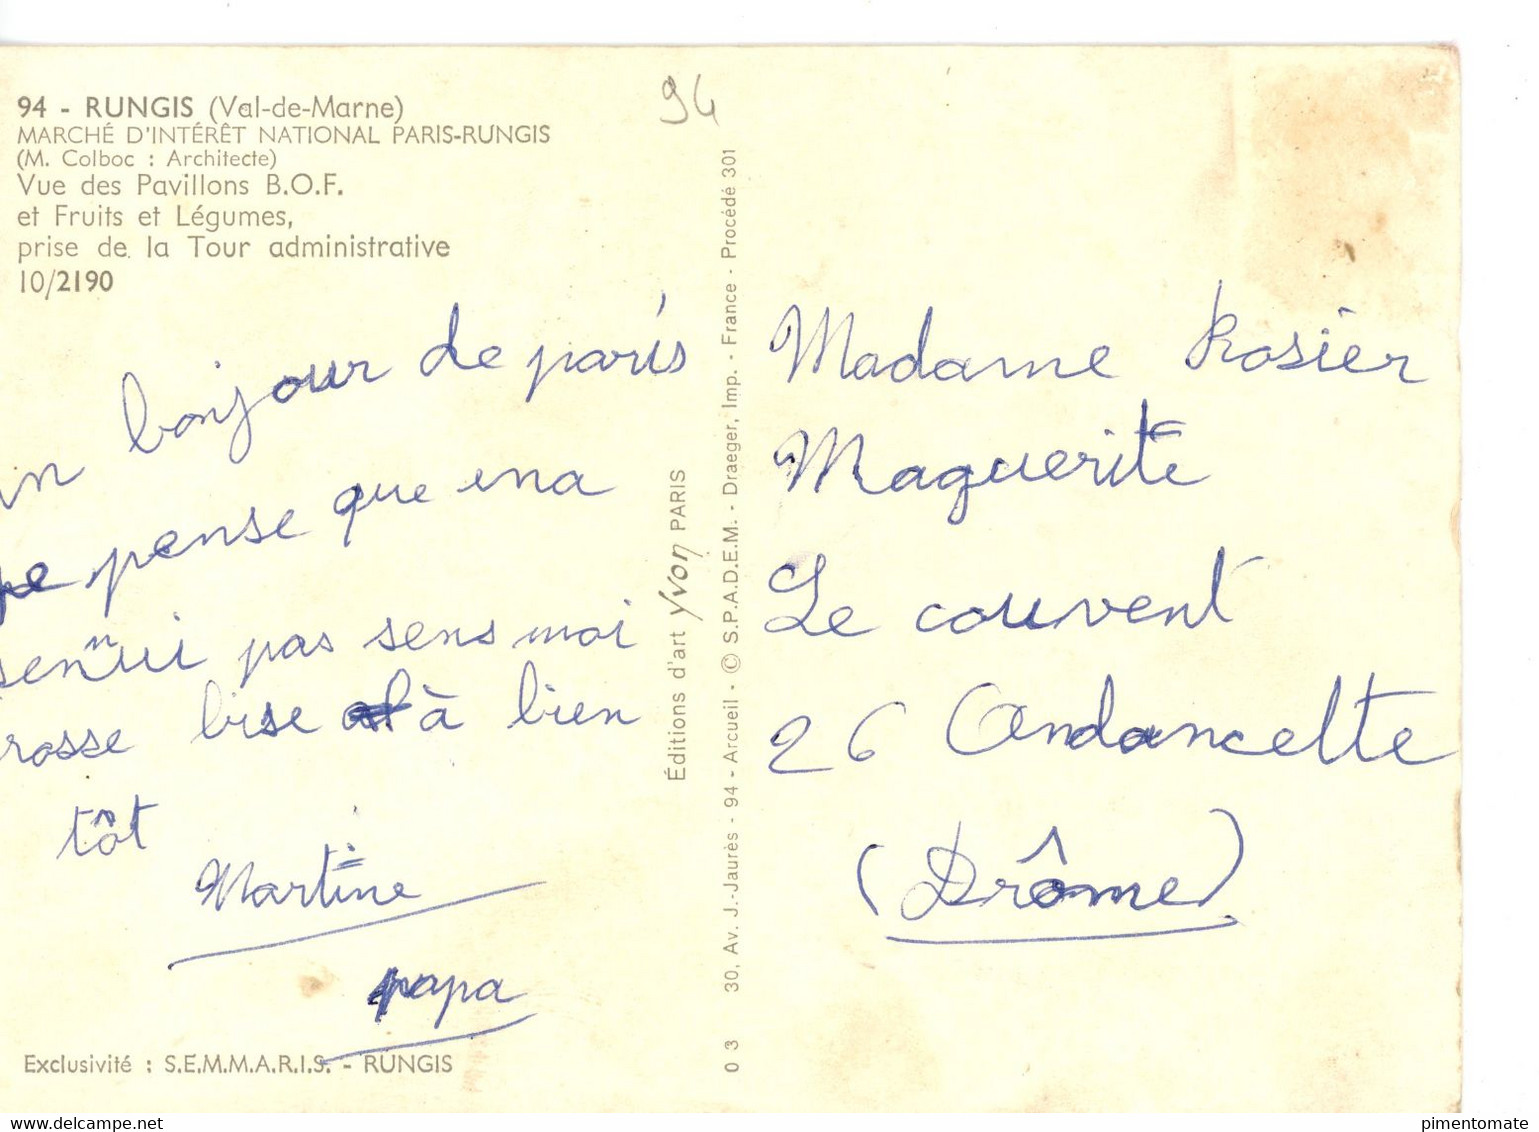 94 - RUNGIS (Val-de-Marne)
MARCHÉ D'INTÉRÊT NATIONAL PARIS-RUNGIS
(M. Colboc : Architecte)
Vue des Pavillons B.O.F.
et Fruits et Légumes,
prise de la Tour administrative
10/2190
94
bonjour de paris
in
pense que ma
senui pas sens moi
rosse bise à bien
tôt
Martine
papa
Exclusivité : S.E.M.M.A.R.I.S. - RUNGIS
Éditions d'art Yvon PARIS
03 30, Av. J.-Jaurès - 94 - Arcueil - © S.P.A.D.E.M. - Draeger, Imp. - France - Procédé 301
Madame Rosier
Maguerite
Le couvent
26 Andancette
(Drôme)
https://www.delcampe.net
pimentomate